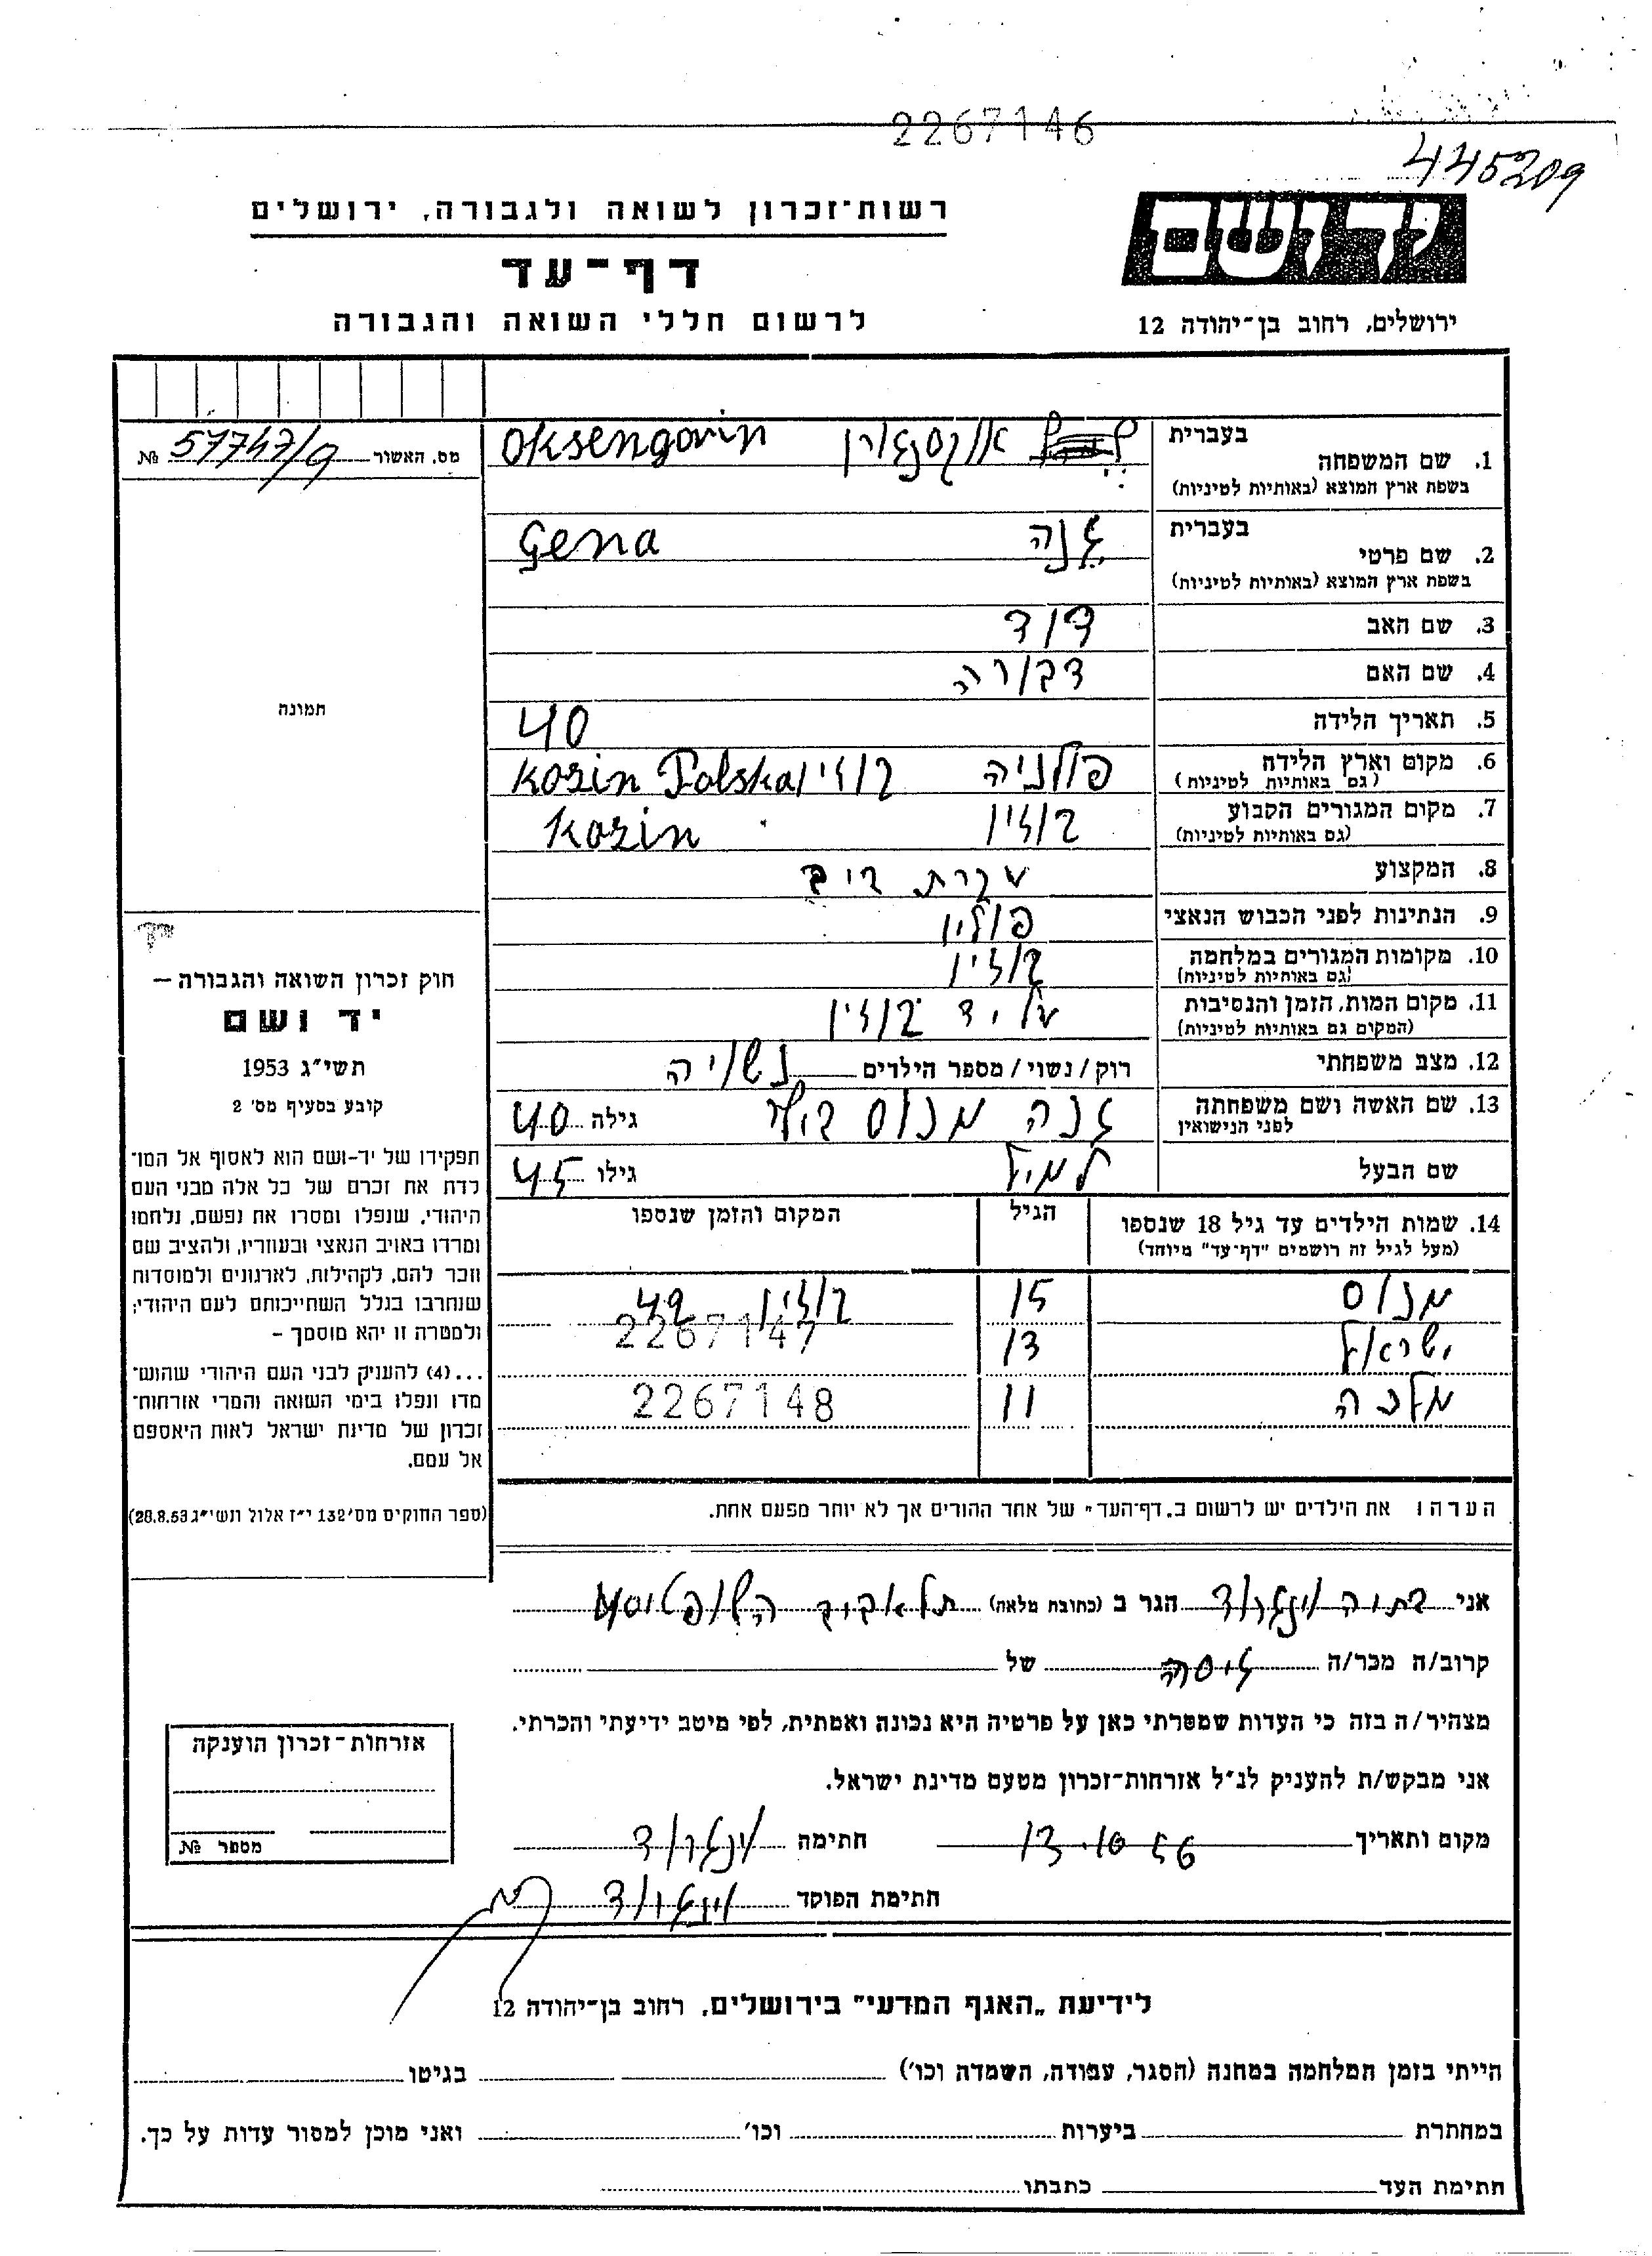 2267146
445209
יד ושם
רשות־זכרון לשואה ולגבורה, ירושלים
דף־עד
לרשום חללי השואה והגבורה
ירושלים, רחוב בן־יהודה 12
מס. האשור 57747/9 №
1. שם המשפחה בעברית אוקסנגורן Oksengorin
בשפת ארץ המוצא (באותיות לטיניות)
2. שם פרטי בעברית גנה Gena
בשפת ארץ המוצא (באותיות לטיניות)
3. שם האב דוד
4. שם האם דבורה
5. תאריך הלידה 40
6. מקום וארץ הלידה פולניה קוזין Kozin Polska
(גם באותיות לטיניות)
7. מקום המגורים הקבוע קוזין Kozin
(גם באותיות לטיניות)
8. המקצוע עקרת בית
9. הנתינות לפני הכבוש הנאצי פולין
10. מקומות המגורים במלחמה קוזין
(גם באותיות לטיניות)
11. מקום המות, הזמן והנסיבות על יד קוזין
(המקום גם באותיות לטיניות)
12. מצב משפחתי רוק/נשוי/מספר הילדים נשויה
13. שם האשה ושם משפחתה גנה מנוס גילה 40
לפני הנישואין
שם הבעל גילו 45
14. שמות הילדים עד גיל 18 שנספו הגיל המקום והזמן שנספו
(מעל לגיל זה רושמים "דף־עד" מיוחד)
מנוס 15 קוזין 42
2267147
ישראל 13
מלכה 11 2267148
הערה: את הילדים יש לרשום ב„דף־העד" של אחד ההורים אך לא יותר מפעם אחת.
תמונה
חוק זכרון השואה והגבורה —
יד ושם
תשי״ג 1953
קובע בסעיף מס׳ 2
תפקידו של יד-ושם הוא לאסוף אל המו־
לדת את זכרם של כל אלה מבני העם
היהודי, שנפלו ומסרו את נפשם, נלחמו
ומרדו באויב הנאצי ובעוזריו, ולהציב שם
וזכר להם, לקהילות, לארגונים ולמוסדות
שנחרבו בגלל השתייכותם לעם היהודי;
ולמטרה זו יהא מוסמך –
...(4) להעניק לבני העם היהודי שהוש־
מדו ונפלו בימי השואה והמרי אזרחות־
זכרון של מדינת ישראל לאות היאספם
אל עמם.
(ספר החוקים מס׳ 132 י״ז אלול תשי״ג 28.8.53)
אני וינגרוד הגר ב (כתובת מלאה) תל אביב השופטים
קרוב/ה מכר/ה גיסה של
מצהיר/ה בזה כי העדות שמסרתי כאן על פרטיה היא נכונה ואמתית, לפי מיטב ידיעתי והכרתי.
אני מבקש/ת להעניק לנ״ל אזרחות־זכרון מטעם מדינת ישראל.
מקום ותאריך 13.10.56 חתימה וינגרוד
חתימת הפוקד וינגרוד
אזרחות־זכרון הוענקה
מספר №
לידיעת „האגף המדעי" בירושלים, רחוב בן־יהודה 12
הייתי בזמן המלחמה במחנה (הסגר, עפודה, השמדה וכו׳) בגיטו
במחתרת ביערות וכו׳ ואני מוכן למסור עדות על כך.
חתימת העד כתבתו